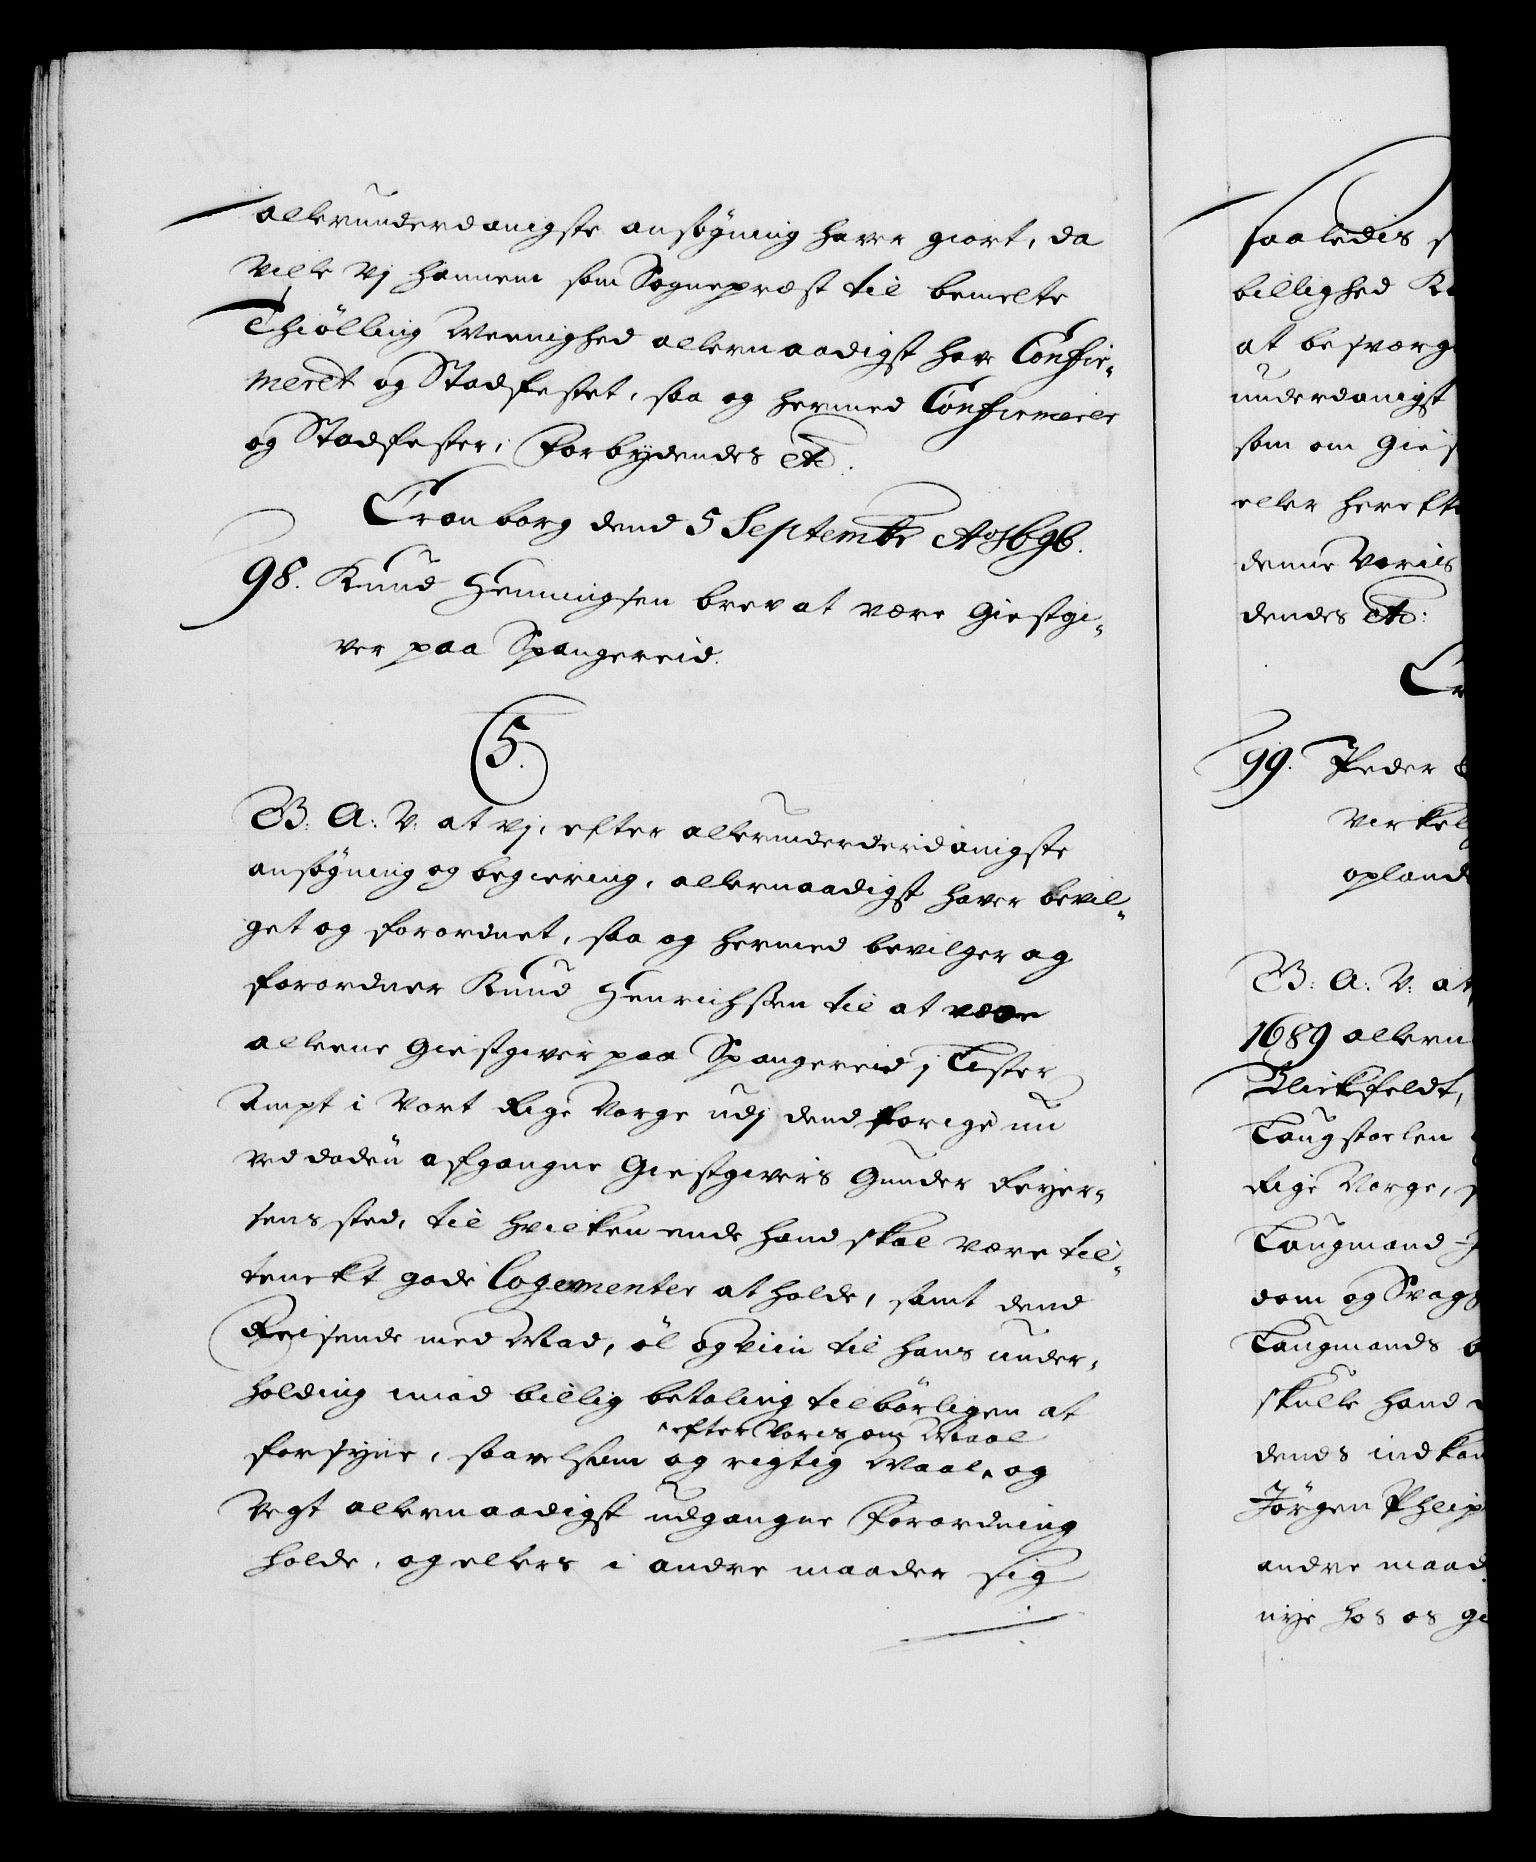 allerunderdanigste ansøgning haver giort, da
Ville Vj hannem som Sognepræst til bemelte
Thiølling Meenighed allernaadigst have Confir-
meret og Stadfestet, saa og hermed Confirmerer
og Stadfester, Forbydendes etc.
Cronborg dend 5 Septembr Ao 1696.
98. Knud Henningsen brev at være Giestgi-
ver paa Spangereid.
5.
G: A: V: at Vj, efter allerunderderdanigste
ansøgning og begiering, allernaadigst haver bevil-
get og forordnet, saa og hermed bevilger og
forordner Knud Henrichsen til at være
alleene Giestgiver paa Spangereid j Lister
Ampt i Vort Rige Norge udj dend forige nu
ved døden afgangne Giestgivers Gunder Reyer-
sens sted, til hvilken ende hand skal være til-
tenckt gode Logementer at holde, samt dend
Reisende med Mad, øl og Viin til hans under-
holding imod billig betaling tilbørligen at
efter Voris om Maal
forsyne, saavelsom og rigtig Maal, og
Vegt allernaadigst udgangne Forordning
holde, og ellers i andre maader sig
saaledis
billighed
at besværge
underdanigst
som om Gies
eller herefte
denne Voris
dendes etc:
Cr
99. Peder
Virkel
opland
G: A: V: at
1689 allern
Bliekfeldt,
Laugstoelen
Rige Norge,
Laugmand
dom og Svag
Laugmands
skulle hand
dends indkom
Jørgen Philip
andre maad
nye hos os gi